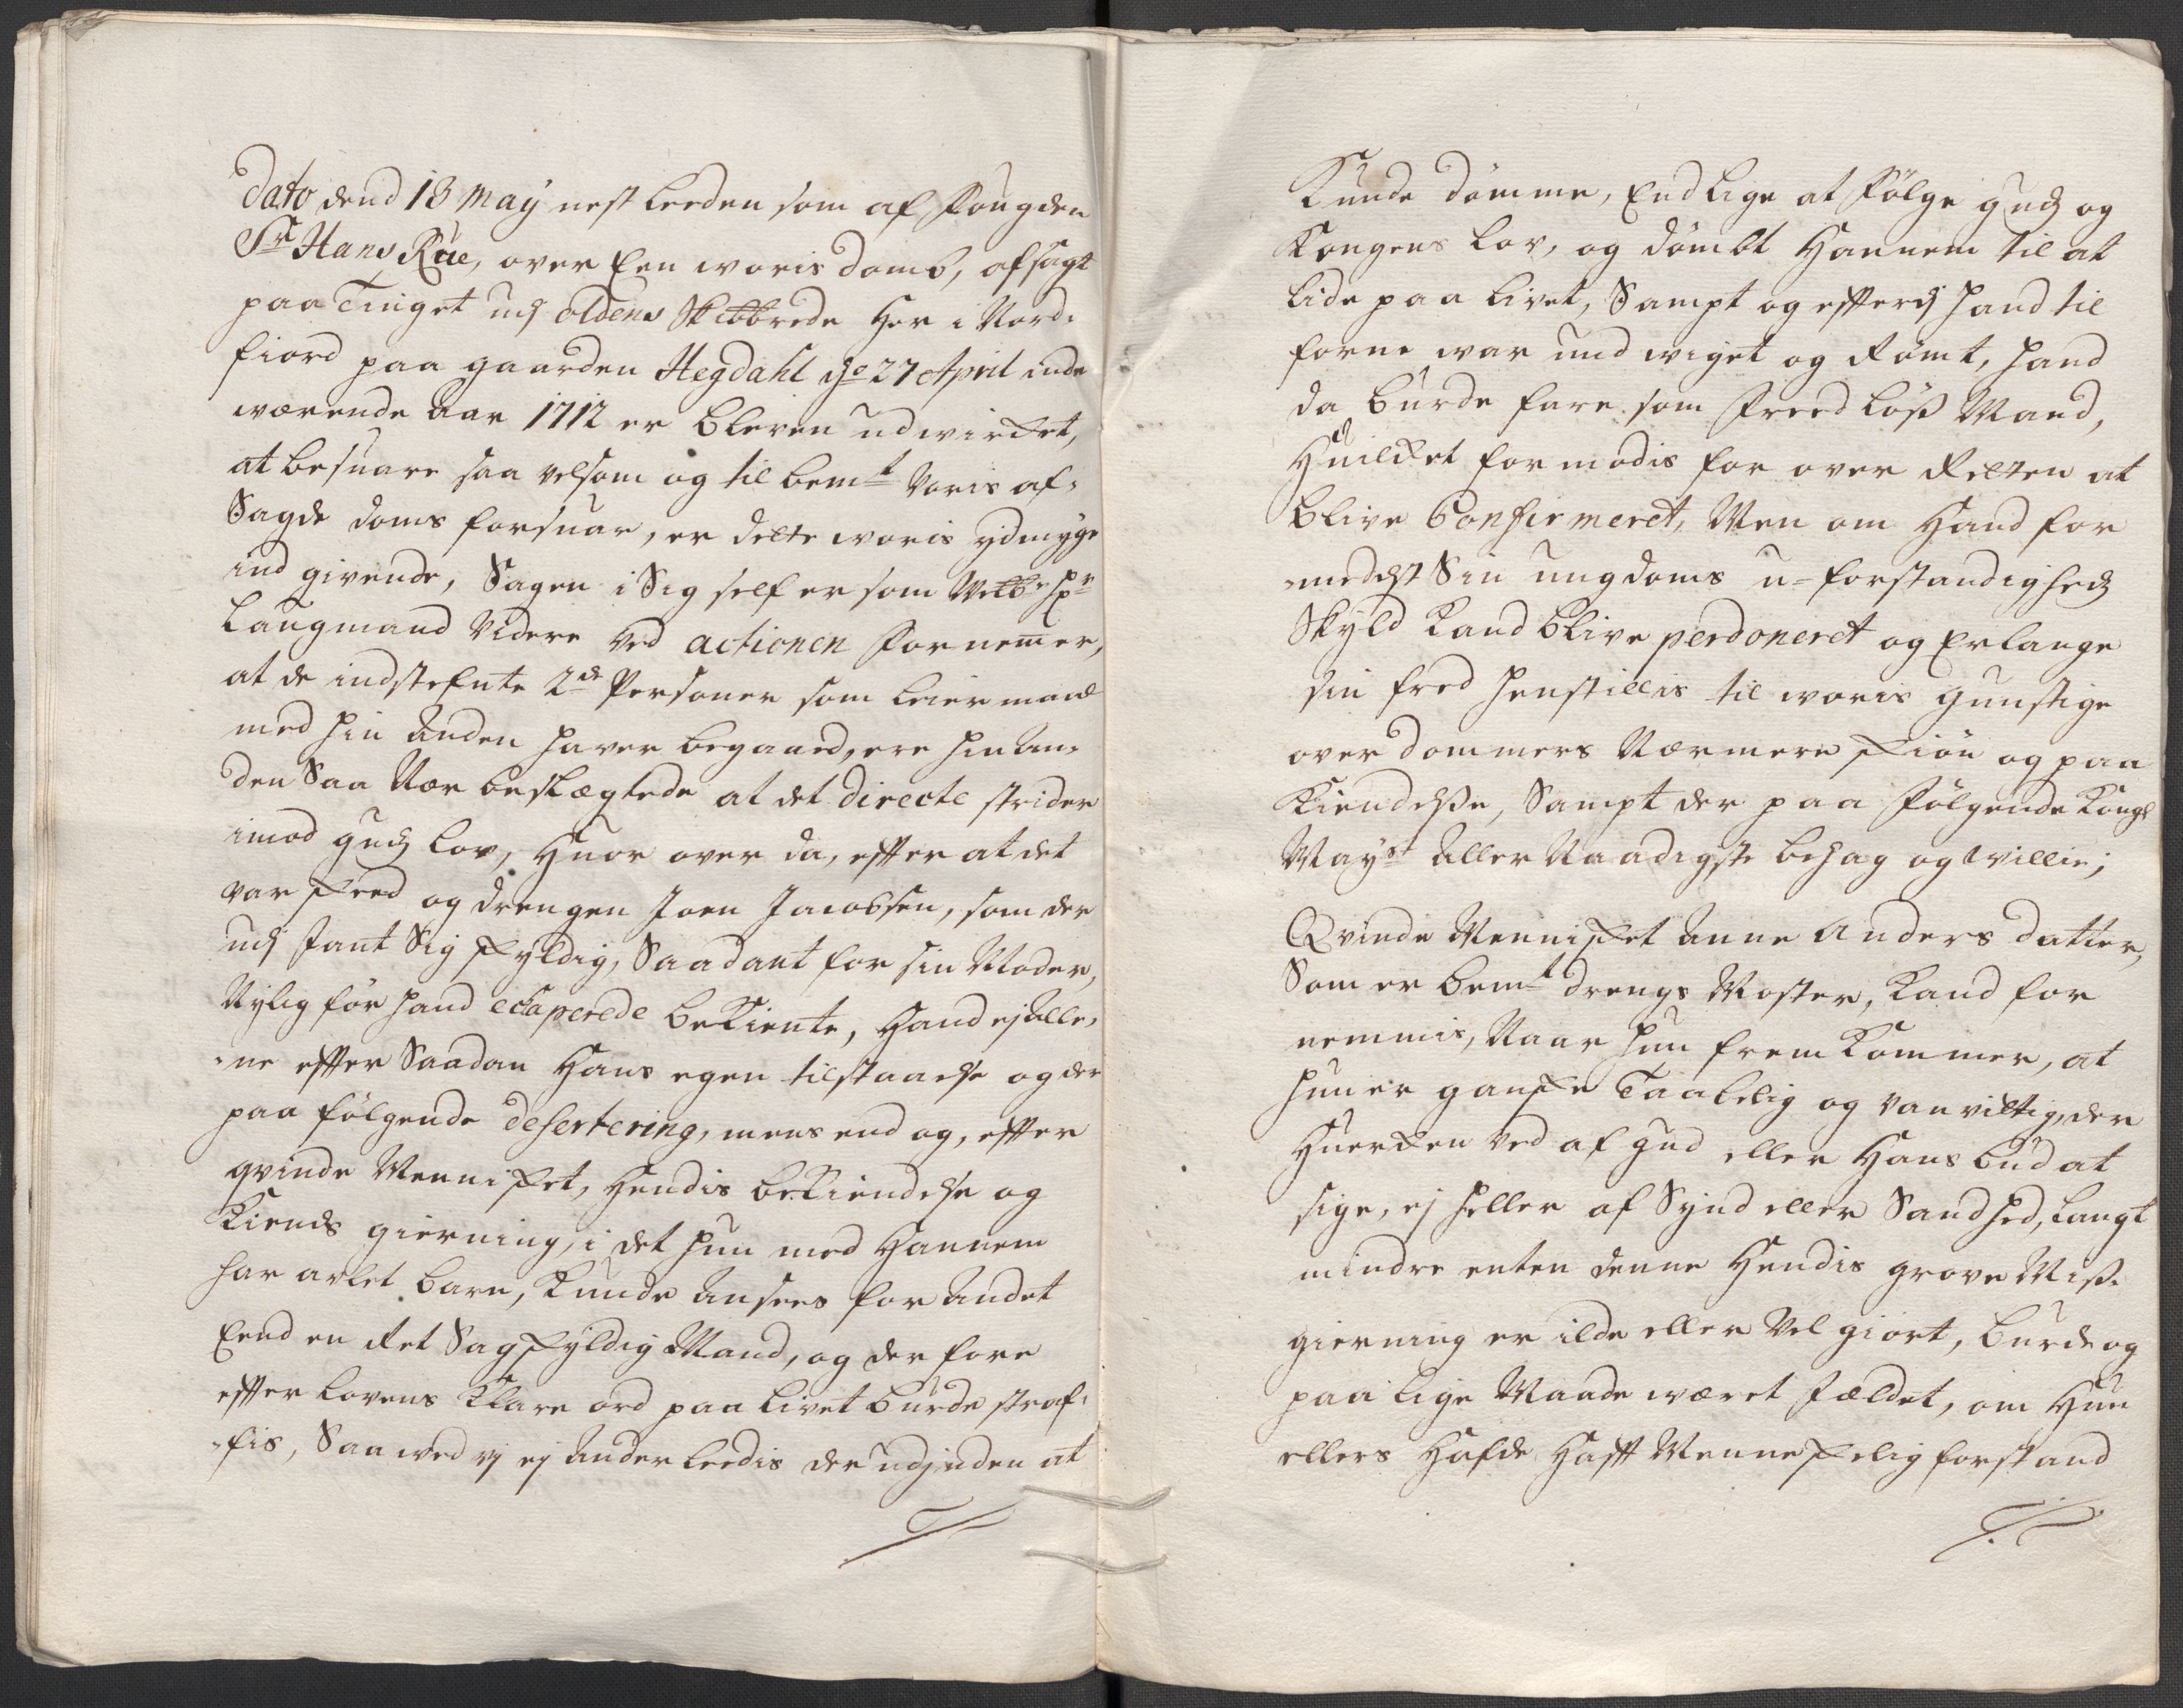 dato dend 13 Maÿ nest leeden som af Fougden
Sr Hans Rue, over Een woris domb, afsagt
paa Tinget udj Oldens Skibbrede her i Nord-
fiord paa gaarden Hegdahl dend 27 April inde
wærende Aar 1712 er bleven udwirket,
at besuare saa velsom og til bemt voris af-
Sagde doms forsuar, er dette woris ydmyge
ind givende, Sagen i Sig self er som Velb: Hr
Laugmand videre ved actionen fornemer,
at de indstefnte 2de Personer som leiermaal
med hin anden haver begaaed, ere hin an-
den Saa Nær beslægtede at det directe strider
imod Guds lov, Huor over da, effter at det
var skeed og drengen Joen Jacobsen, som der
udj fant Sig skyldig, Saadant for sin Moder,
Nylig før hand echaperede bekiente, Hand ej alle-
-ne effter Saadan Hans egen tilstaaelse og der
paa følgende desertering, mens end og, effter
qvinde Mennisket, Hendis bekiendelse og
Kiends gierning, i det hun med Hannem
har avlet barn, kunde ansees for andet
End en Ret Sagskyldig Mand, og der fore
effter lovens klare ord paa livet burde straf-
-fis, Saa wed vj ej anderleedis der udjnden at
Kunde dømme, End lige at følge guds og
Kongens lov, og dømbt Hannem til at
lide paa livet, Sampt og effterdj hand til
forne war und wiget og Rømt, hand
da burde fare som Freedløß Mand,
Huilket formodis for over Retten at
blive Confirmeret, Men om Hand for
-medelst Sin ungdoms u-forstandigheds
Skyld kand blive perdoneret og Erlange
sin fred henstillis til woris gunstige
over dommers Nærmere skiøn og paa
Kiendelße, Sampt der paa følgende Kongl
Mayst Aller Naadigste behag og Willie;
Qvinde Mennisket Anne Anders datter,
Som er bemt drengs Moster, kand for
nemmis, Naar hun frem kommer, at
hun er ganske Taabelig og vanvittig, der
Huerken ved af Gud eller Hans bud at
sige, ej heller af Synd eller Sandhed, langt
mindre enten denne Hendis grove Miß-
gierning er ilde eller vel giort, burde og
paa lige Maade været fældet, om Hun
ellers Hafde Hafft Menneskelig forstand